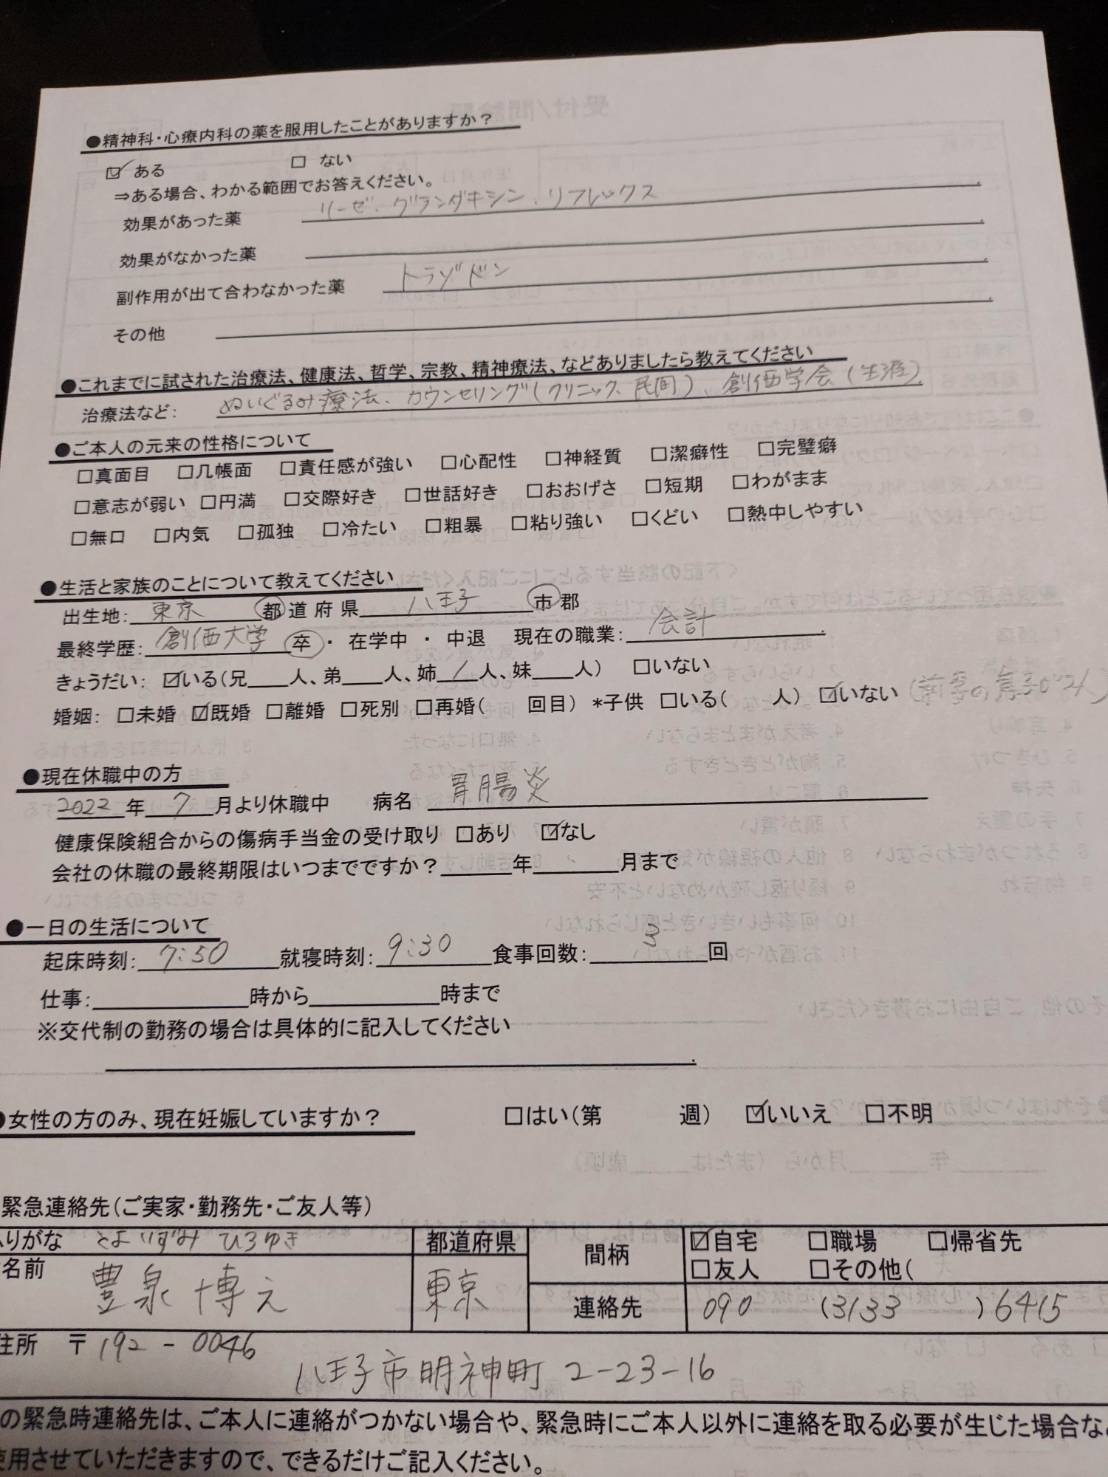 ●精神科・心療内科の薬を服用したことがありますか？
☑ ある □ ない
⇒ある場合、わかる範囲でお答えください。
効果があった薬 リーゼ、グランダキシン、リフレックス
効果がなかった薬
副作用が出て合わなかった薬 トラゾドン
その他
●これまでに試された治療法、健康法、哲学、宗教、精神療法、などありましたら教えてください
治療法など： ぬいぐるみ療法、カウンセリング(クリニック、民間)、創価学会(生涯)
●ご本人の元来の性格について
□真面目 □几帳面 □責任感が強い □心配性 □神経質 □潔癖性 □完璧癖
□意志が弱い □円満 □交際好き □世話好き □おおげさ □短期 □わがまま
□無口 □内気 □孤独 □冷たい □粗暴 □粘り強い □くどい □熱中しやすい
●生活と家族のことについて教えてください
出生地： 東京 都道府県 八王子 市郡
最終学歴： 創価大学 卒・在学中・中退 現在の職業： 会計
きょうだい： ☑いる(兄 人、弟 人、姉 1 人、妹 人) □いない
婚姻： □未婚 ☑既婚 □離婚 □死別 □再婚( 回目) *子供 □いる( 人) ☑いない
●現在休職中の方
2022年 7 月より休職中 病名 胃腸炎
健康保険組合からの傷病手当金の受け取り □あり ☑なし
会社の休職の最終期限はいつまでですか？ 年 月まで
●一日の生活について
起床時刻： 7:50 就寝時刻： 9:30 食事回数： 3 回
仕事： 時から 時まで
※交代制の勤務の場合は具体的に記入してください
●女性の方のみ、現在妊娠していますか？ □はい(第 週) ☑いいえ □不明
緊急連絡先(ご実家・勤務先・ご友人等)
りがな とよいずみ ひろゆき 都道府県 間柄 ☑自宅 □職場 □帰省先
名前 豊泉 博之 東京 □友人 □その他(
連絡先 090 (3133 )6415
住所 〒192-0046
八王子市明神町 2-23-16
の緊急時連絡先は、ご本人に連絡がつかない場合や、緊急時にご本人以外に連絡を取る必要が生じた場合な
使用させていただきますので、できるだけご記入ください。